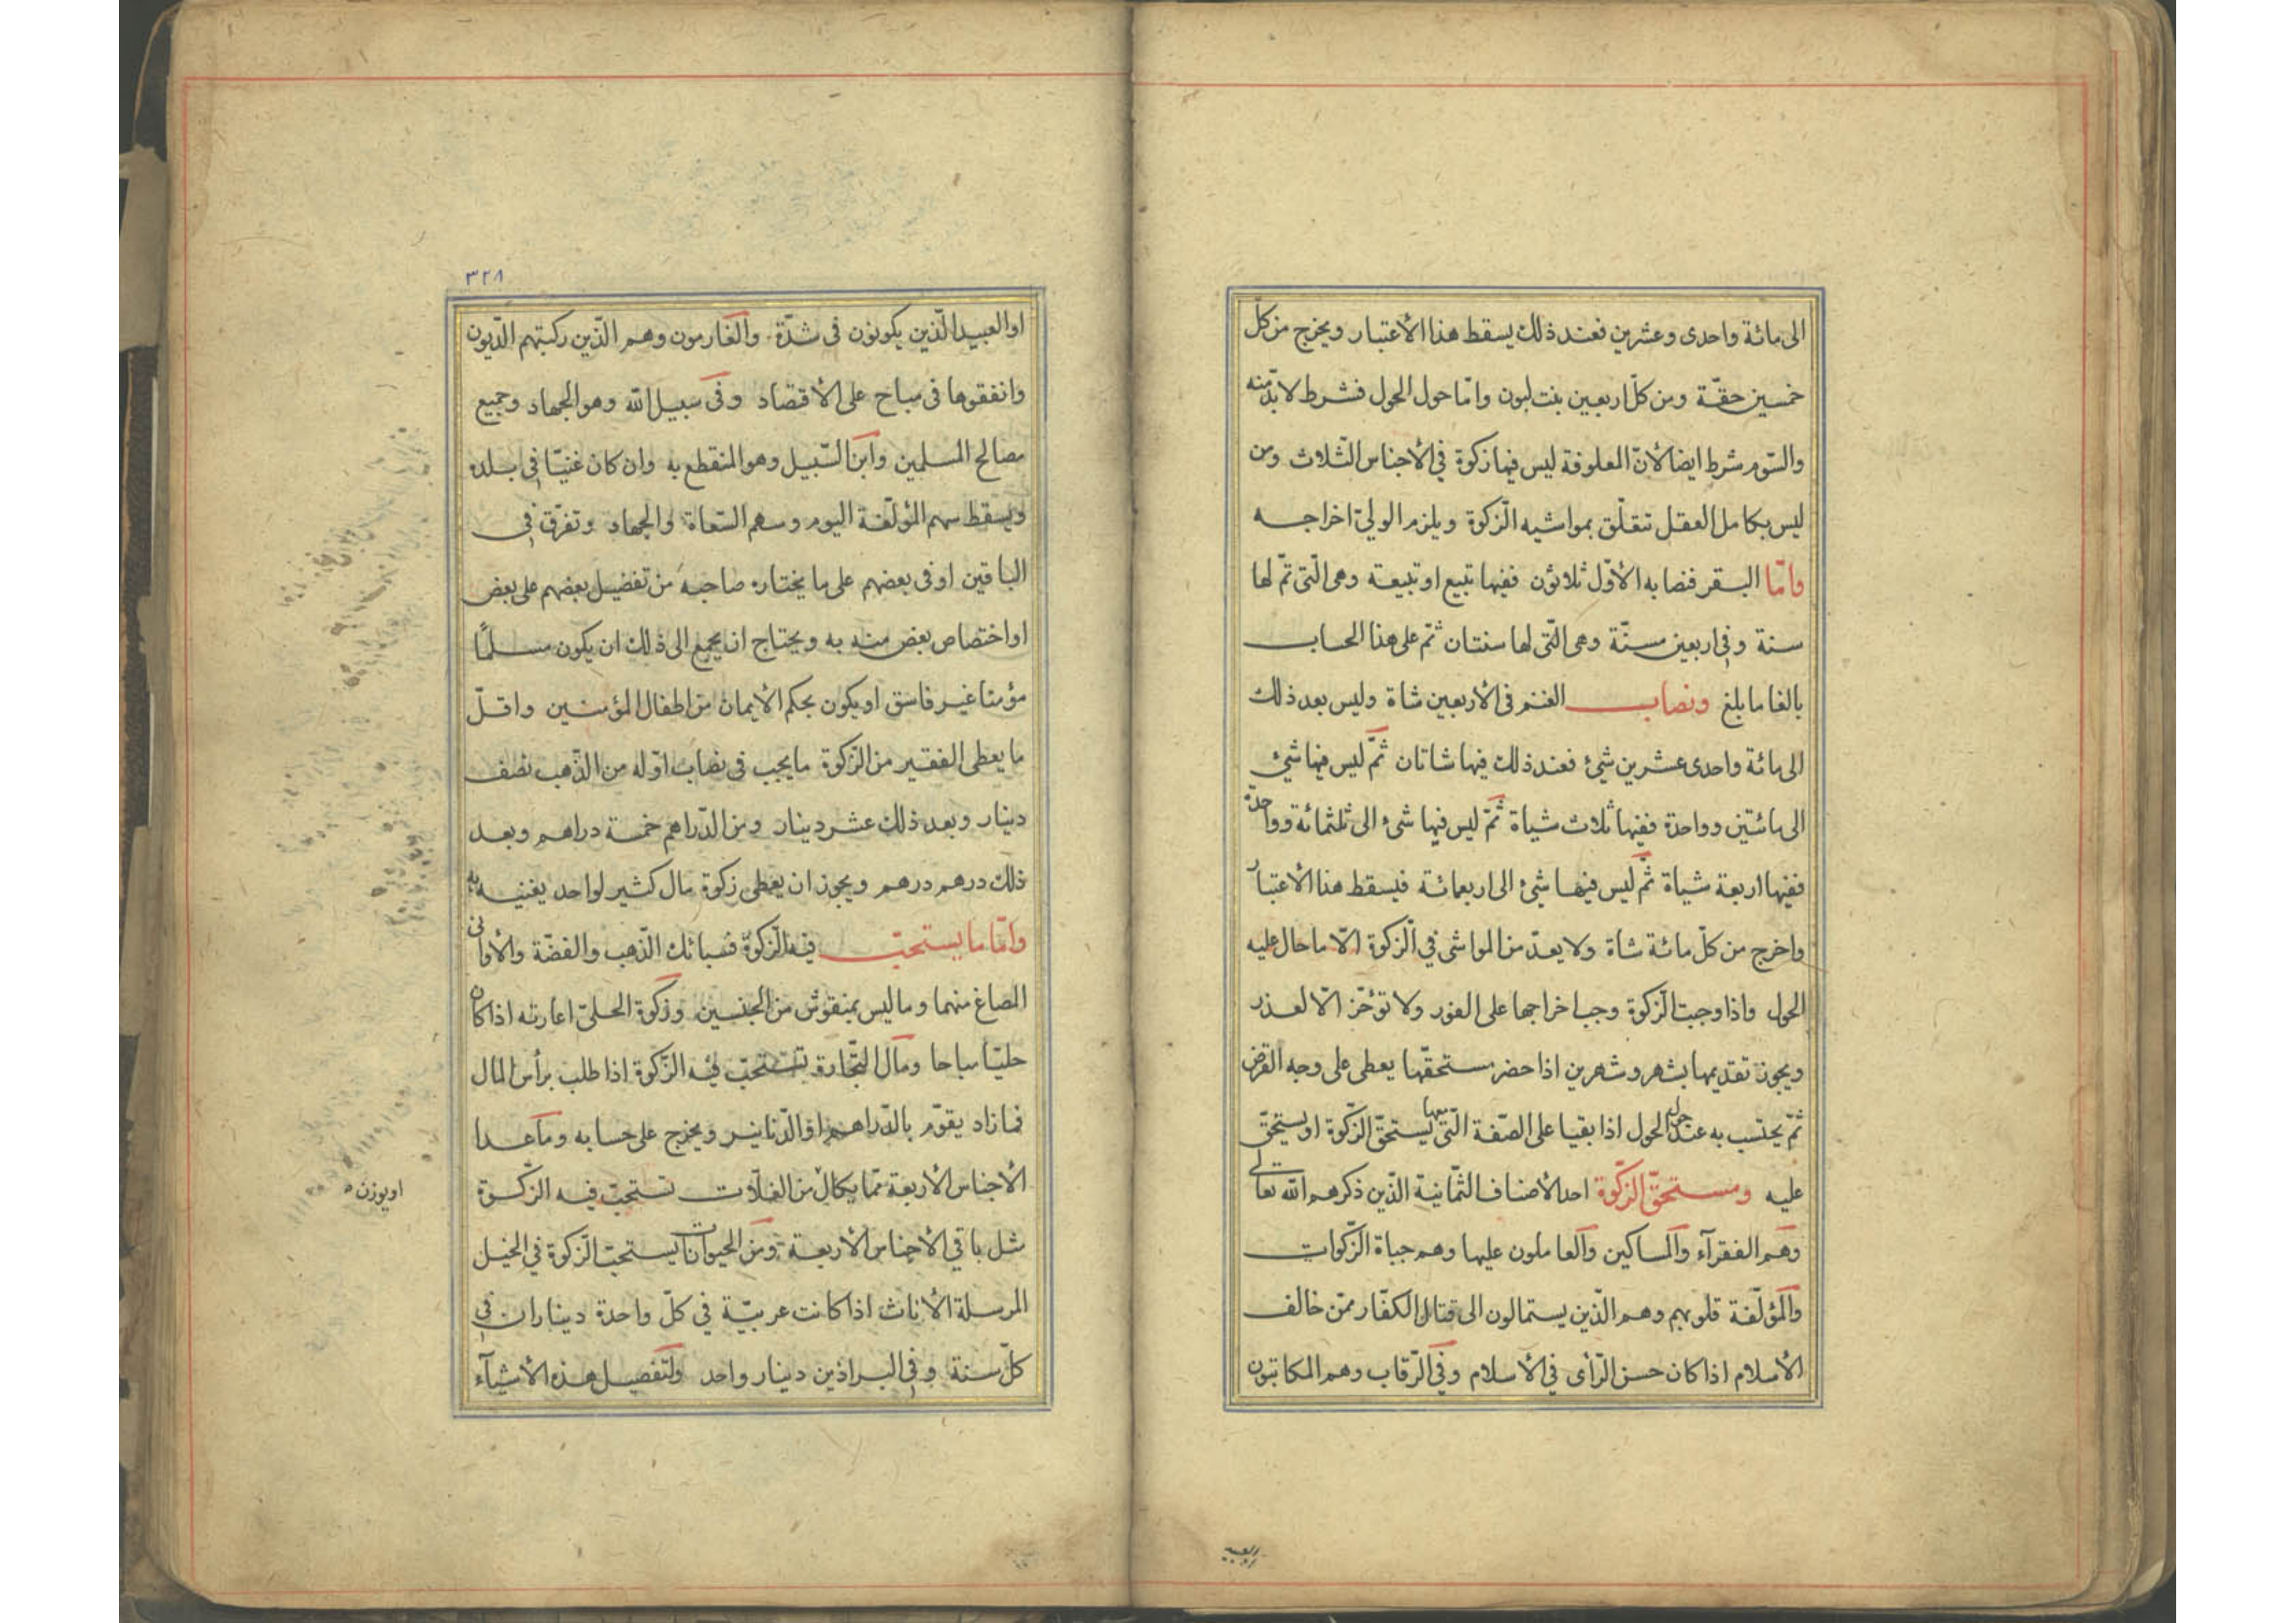 الى مائة واحدى وعشرين فعند ذلك يسقط هذا الأعتبار ويخرج من كلّ
خمسين حقّة ومن كلّ اربعين بنت لبون وامّا حول الحول فشرط لا بدّ منه
والسّوم شرط ايضا لأنّ المعلوفة ليس فيها زكوة في الأجناس الثّلاث ومن
ليس بكامل العقل تتعلّق بمواشيه الزّكوة ويلزم الوليّ اخراجه
وامّا البقر فنصابه الأوّل ثلاثون ففيها تبيع او تبيعة وهى الّتى تمّ لها
سنة وفي اربعين مسنّة وهى الّتى لها سنتان ثمّ على هذا الحساب
بالغا ما بلغ ونصاب الغنم فى الأربعين شاة وليس بعد ذلك
الى مائة واحدى عشرين شئ فعند ذلك فيها شاتان ثمّ ليس فيها شئ
الى مائتين وواحدة ففيها ثلاث شياة ثمّ ليس فيها شئ الى ثلثمائة وواحدة
ففيها اربعة شياة ثمّ ليس فيها شئ الى اربعمائة فيسقط هذا الأعتبار
واخرج من كلّ مائة شاة ولا يعدّ من المواشى في الزّكوة الّا ما حال عليه
الحول واذا وجبت الزّكوة وجب اخراجها على الفور ولا تؤخّر الّا لعذر
ويجوز تقديمها بشهر وشهرين اذا حضر مستحقّها يعطى على وجه القرض
ثمّ يحتسب به عند حول الحول اذا بقيا على الصّفة الّتى معها يستحقّ الزّكوة او يستحقّ
عليه ومستحقّ الزّكوة احد الأصناف الثّمانية الّذين ذكرهم الله تعالى
وهم الفقرآء والمساكين والعاملون عليها وهم جباة الزّكوات
والمؤلّفة قلوبهم وهم الّذين يستمالون الى قتال الكفّار ممّن خالف
الأسلام اذا كان حسن الرّأى في الأسلام وفي الرّقاب وهم المكاتبون
او العبيد
٣٢٨
او العبيد الّذين يكونون فى شدّة والغارمون وهم الّذين ركبتهم الدّيون
وانفقوها فى مباح على الأقتصاد وفى سبيل الله وهو الجهاد وجميع
مصالح المسلمين وابن السّبيل وهو المنقطع به وان كان غنيّا في بلده
ويسقط سهم المؤلّفة اليوم وسهم السّعاة والجهاد وتفرّق في
الباقين او فى بعضهم على ما يختاره صاحبه من تفضيل بعضهم على بعض
او اختصاص بعض منه به ويحتاج ان يجمع الى ذلك ان يكون مسلمًا
مؤمنا غير فاسق او يكون بحكم الأيمان من اطفال المؤمنين واقلّ
ما يعطى الفقير من الزّكوة ما يجب فى نصاب اوّله من الذّهب نصف
دينار وبعد ذلك عشر دينار ومن الدّراهم خمسة دراهم وبعد
ذلك درهم درهم ويجوز ان يعطى زكوة مال كثير لواحد يغنيه به
وامّا ما يستحبّ فيه الزّكوة فسبائك الذّهب والفضّة والأوانى
المصاغ منهما وما ليس بمنقوش من الجنسين وزكوة الحلىّ اعارته اذا كان
حليّا مباحا ومال التّجارة تستحبّ فيه الزّكوة اذا طلب برأس المال
فما زاد يقوّم بالدّراهم او الدّنانير ويخرج على حسابه وما عدا
الأجناس الأربعة ممّا يكال من الغلّات تستحبّ فيه الزّكوة
او يوزن
مثل باقي الأجناس الأربعة ومن الحيوانات يستحبّ الزّكوة في الخيل
المرسلة الأناث اذا كانت عربيّة في كلّ واحدة ديناران في
كلّ سنة وفي البراذين دينار واحد ولتفصيل هذه الأشيآء